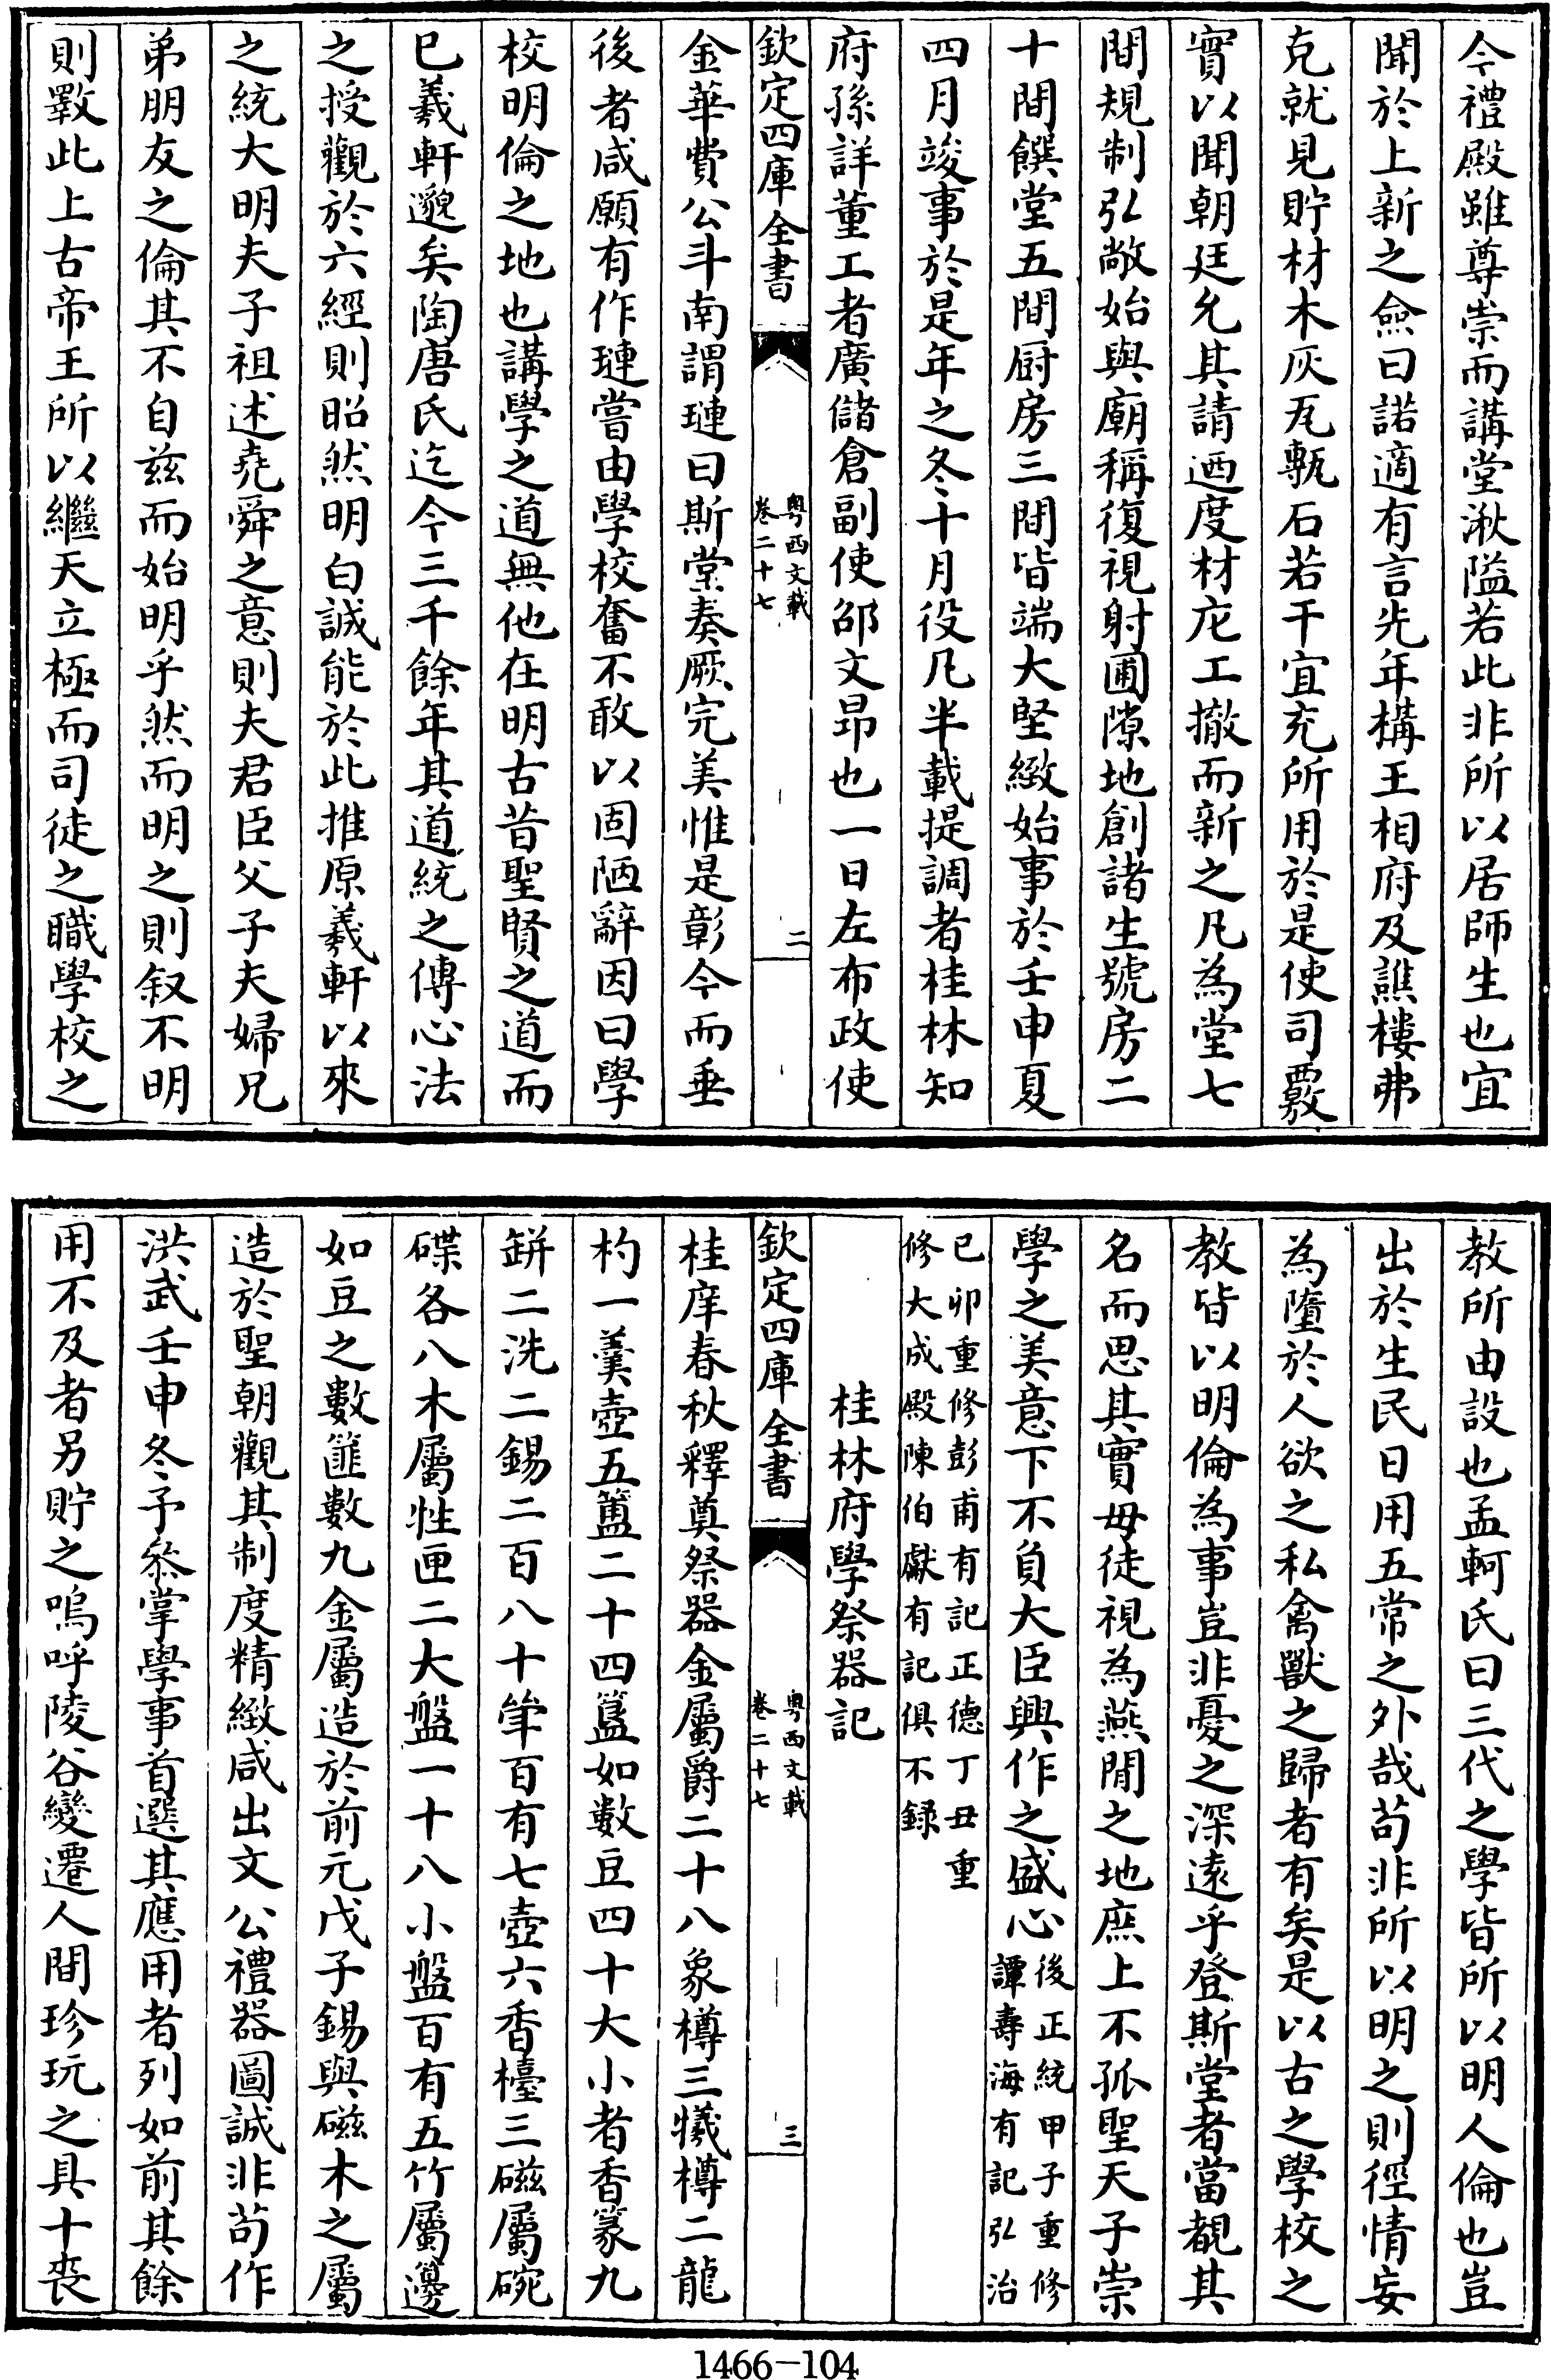 今禮殿雖尊崇而講堂湫隘若此非所以居師生也宜
聞於上新之僉曰諾適有言先年構王相府及譙樓弗
克就見貯材木灰瓦甎石若干宜充所用於是使司覈
實以聞朝廷允其請迺度材庀工撤而新之凡為堂七
間規制弘敞始與廟稱復視射圃隙地創諸生號房二
十間饌堂五間厨房三間皆端大堅緻始事於壬申夏
四月竣事於是年之冬十月役凡半載提調者桂林知
府孫詳董工者廣儲倉副使邵文昂也一日左布政使
欽定四庫全書
粵西文載
卷二十七
二
金華費公斗南謂璉曰斯堂奏厥完美惟是彰今而垂
後者咸願有作璉嘗由學校奮不敢以固陋辭因曰學
校明倫之地也講學之道無他在明古昔聖賢之道而
已羲軒邈矣陶唐氏迄今三千餘年其道統之傳心法
之授觀於六經則昭然明白誠能於此推原羲軒以來
之統大明夫子祖述堯舜之意則夫君臣父子夫婦兄
弟朋友之倫其不自兹而始明乎然而明之則叙不明
則斁此上古帝王所以繼天立極而司徒之職學校之
教所由設也孟軻氏曰三代之學皆所以明人倫也豈
出於生民日用五常之外哉苟非所以明之則徑情妄
為墮於人欲之私禽獸之歸者有矣是以古之學校之
教皆以明倫為事豈非憂之深遠乎登斯堂者當覩其
名而思其實毋徒視為燕閒之地庶上不孤聖天子崇
學之美意下不負大臣興作之盛心後正統甲子重修
譚壽海有記弘治
已卯重修彭甫有記正德丁丑重
修大成殿陳伯獻有記俱不録
桂林府學祭器記
欽定四庫全書
粵西文載
卷二十七
三
桂庠春秋釋奠祭器金屬爵二十八象樽三犧樽二龍
杓一羹壺五簠二十四簋如數豆四十大小者香篆九
缾二洗二錫二百八十筆百有七壺六香檯三磁屬碗
碟各八木屬牲匣二大盤一十八小盤百有五竹屬籩
如豆之數篚數九金屬造於前元戊子錫與磁木之屬
造於聖朝觀其制度精緻咸出文公禮器圖誠非苟作
洪武壬申冬予叅掌學事首選其應用者列如前其餘
用不及者另貯之嗚呼陵谷變遷人間珍玩之具十喪
1466-104